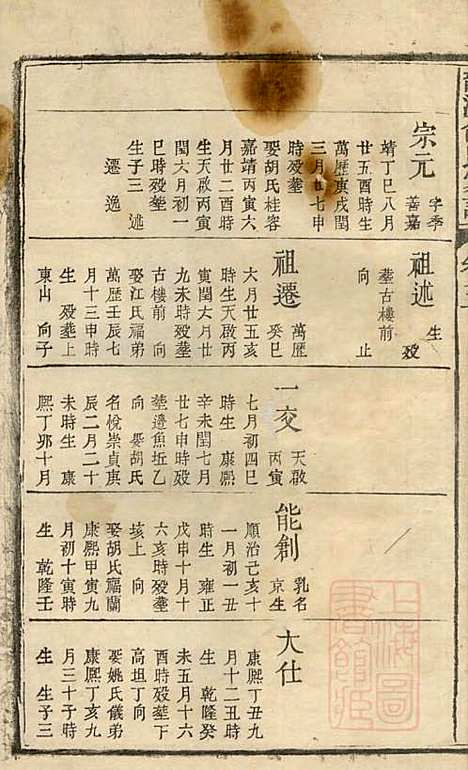 宗元
字季
善嘉
靖丁巳八月
廿五酉時生
萬歷庚戌閏
三月廿七申
時殁塟
娶胡氏桂容
嘉靖丙寅六
月廿二酉時
生天啟丙寅
閏六月初一
巳時殁塟
生子三 述
遷 逸
祖述
生
殁
塟古樓前
向 止
祖遷
萬歷
癸巳
六月廿五亥
時生天啟丙
寅閏六月初
九未時殁塟
古樓前 向
娶江氏福弟
萬歷壬辰七
月十三申時
生 殁塟上
東山 向子
一交
天啟
丙寅
七月初四巳
時生 康熙
辛未閏七月
廿七申時殁
塟邊魚坵乙
向 娶胡氏
名悅崇貞庚
辰二月二十
未時生 康
熙丁卯十月
能創
乳名
京生
順治己亥十
一月初一丑
時生 雍正
戊申十月十
六亥時殁塟
垓上 向
娶胡氏福蘭
康熙甲寅九
月初十寅時
生 乾隆壬
大仕
康熙丁丑九
月十二丑時
生 乾隆癸
未五月十六
酉時殁塟下
高坦丁向
娶姚氏儀弟
康熙丁亥九
月三十子時
生 生子三
上海圖
書館藏